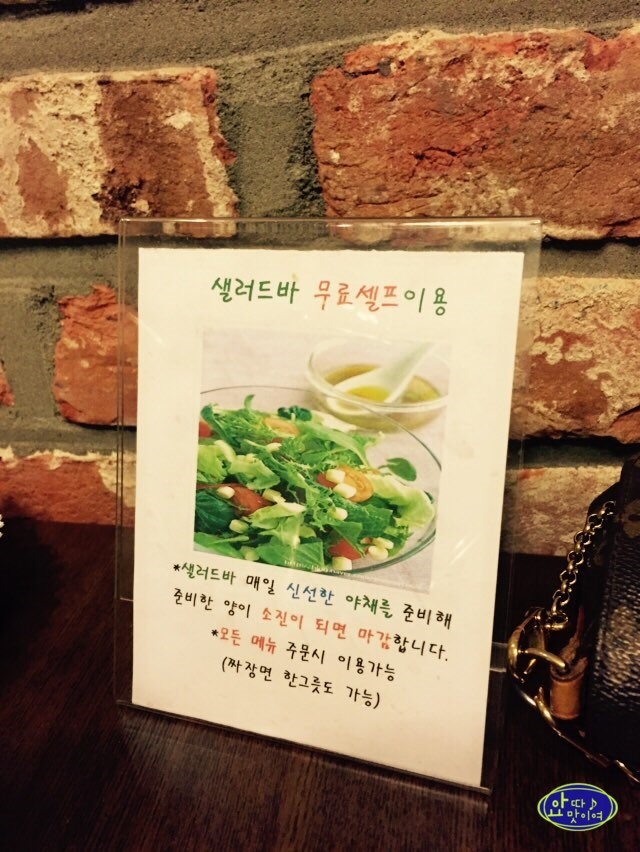 샐러드바 무료셀프이용
*샐러드바 매일 신선한 야채를 준비해
준비한 양이 소진이 되면 마감합니다.
*모든 메뉴 주문시 이용가능
(짜장면 한그릇도 가능)
요 따♪
맛이여